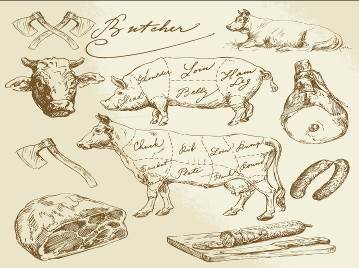 Butcher
Shoulder Loin Ham
Leg
Head Belly
Chuck Rib Loin Rump
Brisket Plate Flank Round